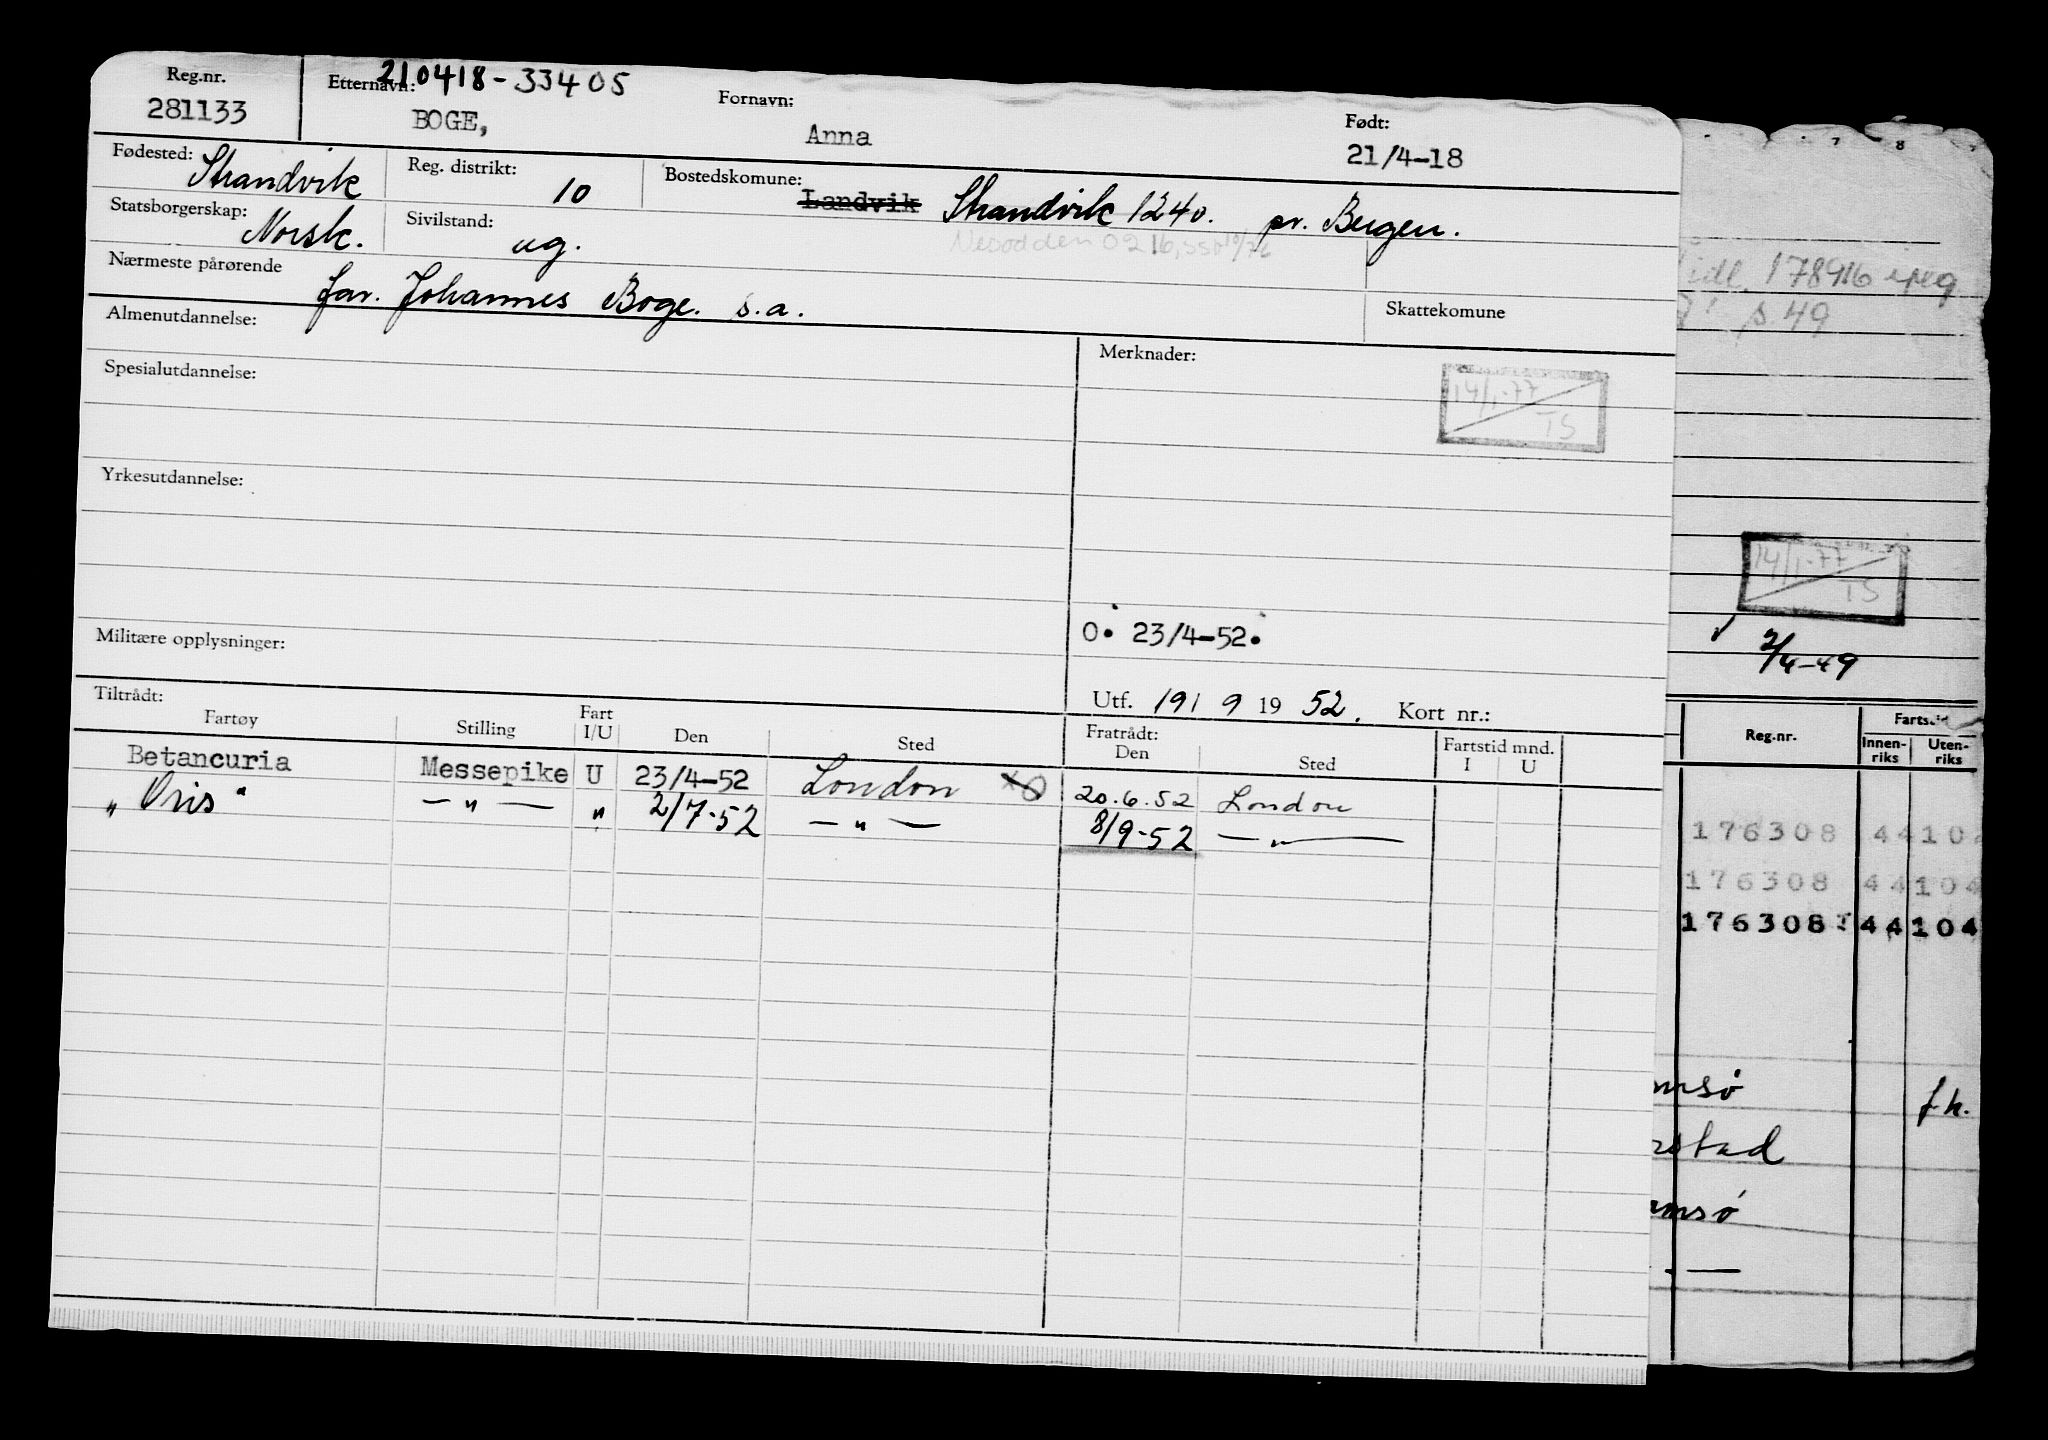 Reg.nr. Etternavn: 210418-33405 Fornavn: Født:
281133 BOGE, Anna 21/4-18
Fødested: Strandvik Reg. distrikt: 10 Bostedskomune: Landvik Strandvik 1240. pr. Bergen.
Statsborgerskap: Norsk. Sivilstand: ug. Nesodden 0216, ssb 10/76
Nærmeste pårørende far. Johannes Boge. s.a. Skattekomune
Almenutdannelse: Merknader:
14/1-77
TS
Spesialutdannelse:
Yrkesutdannelse:
Militære opplysninger: O. 23/4-52.
Utf. 19/ 9 19 52. Kort nr.:
Tiltrådt: Fratrådt:
Fartøy Stilling Fart I/U Den Sted Den Sted Fartstid mnd. I U
Betancuria Messepike U 23/4-52 London 20.6.52 London
"Oris" — " — " 2/7-52 — " — 8/9-52 — " —
7 8
tidl. 178916 i reg
s. 49
14/1-77
TS
2/4-49
Reg.nr. Innen-riks Uten-riks
176308 44 102
176308 44 104
176308 44 104
msö f.h.
rstad
msö
— " —